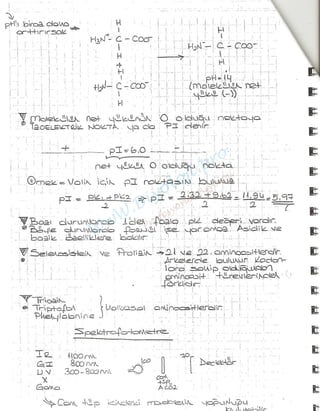 pH'ı biraz daha
arttırırsak →
H
H₃N⁺- C - COO⁻
H
H
H₂N - C - COO⁻
H
H
H₂N - C - COO⁻
H
pH=14
(molekülün net
yükü (-))
Molekülün net yükünün O olduğu noktaya
İZOELEKTRİK NOKTA ya da PI denir.
+ pI=6.0 -
net yükün O olduğu nokta
Örnek = Valin için pI noktasını bulunuz
pI = pK₁ + pK₂ / 2 ⇒ pI = 2.32 + 9.62 / 2 = 11.94 / 2 = 5.97
Bazı durumlarda 1'den fazla pK değeri vardır.
Böyle durumlarda formül işe yaramaz. Asidik ve
bazik özelliklere bakılır.
Selenosistein ve Prolizin → 21 ve 22. aminoasitlerdir.
bulunur.
sahip olduğundan
aminoasit türevlerinden
farklıdır.
Tirozin
Triptofan
Phenylalanine
aminoasitlerdir.
Spektrofotometre
IR 1100 nm
GI 800 nm
UV 300-800 nm
X
Gama
Dedektör
Cam tüp içindeki maddenin yoğunluğu